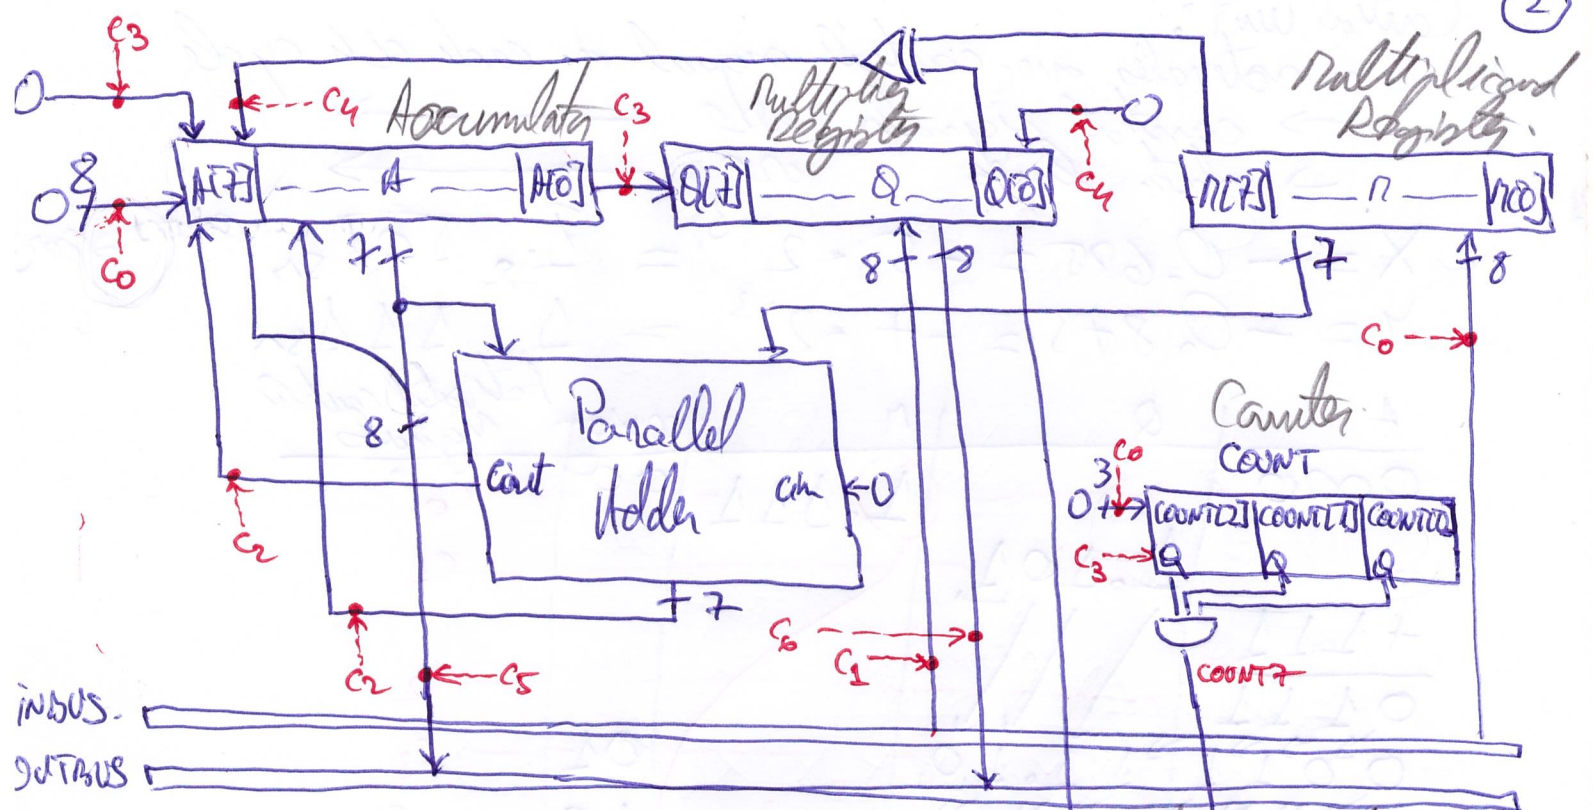 2
c3
0
c4
Accumulator
c3
Multiplier
Register
0
c4
Multiplicand
Register.
8
0
c0
A[7] A A[0]
Q[7] Q Q[0]
M[7] M M[0]
7
8 8
7
8
c0
8
Parallel
Adder
Cout
Cin
0
c2
Counter
COUNT
c0
3
0
COUNT[2] COUNT[1] COUNT[0]
c3
Q Q Q
7
c2
c5
c6
c1
COUNT7
INBUS.
OUTBUS